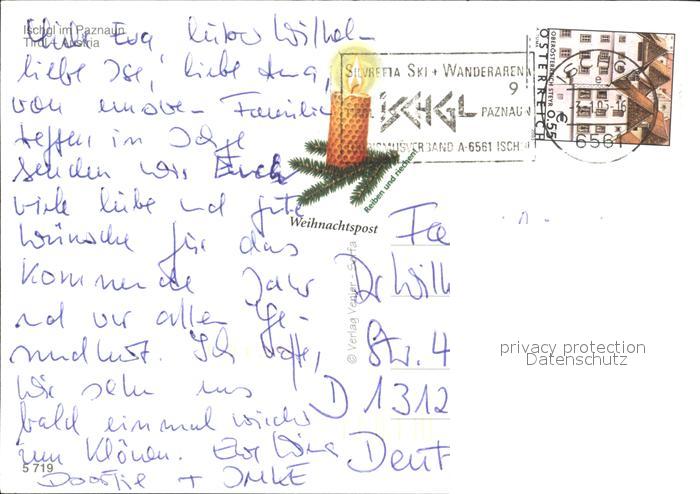 Ischgl im Paznaun
Tirol - Austria
Liebe Eva lieber Wilhelm
liebe Ise, liebe Anna,
von unserem Familien
treffen in Ischge
senden wir Euch
viele liebe und gute
Wünsche für das
kommende Jahr
und vor allem Ge-
sundheit. Ich hoffe,
wir sehn uns
bald einmal wieder
zum Klönen.
+ IMKE
5 719
Weihnachtspost
Reiben und riechen
© Verlag Venier -
SILVRETTA SKI + WANDERARENA
9
ISCHGL PAZNAUN
TOURISMUSVERBAND A-6561 ISCHGL
6561
OBERÖSTERREICH STEYR
ÖSTERREICH
€ 0.55
Fa
Dr Wilh
Str. 4
D 1312
Deut
privacy protection
Datenschutz